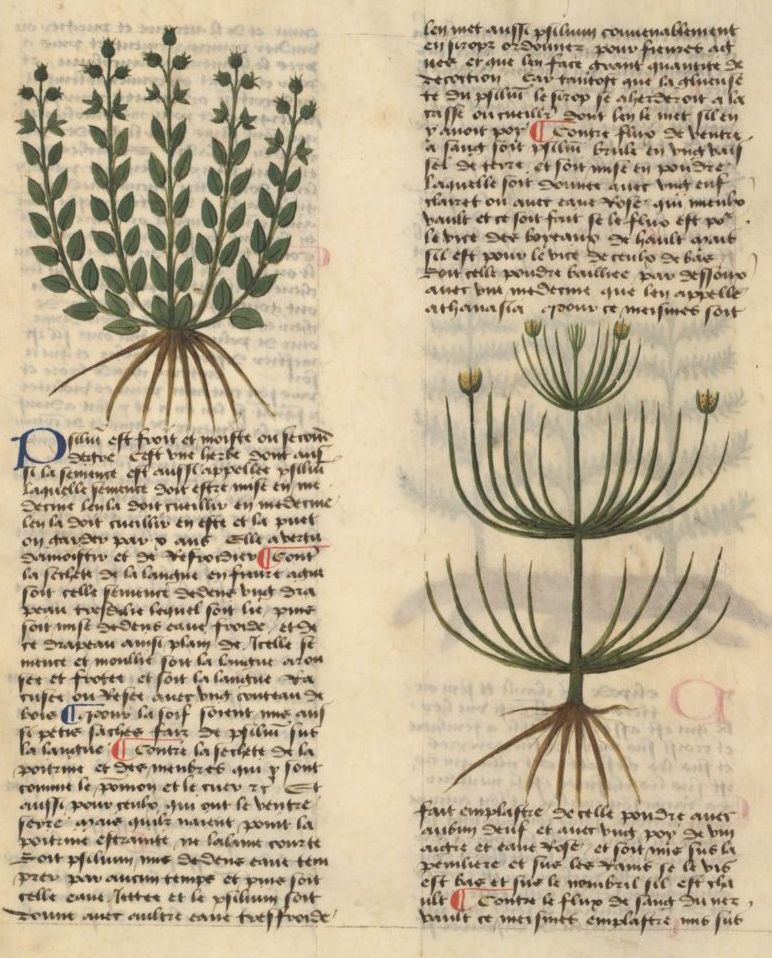 Psiliũ est froit et moiste ou second
degre Cest vne herbe dont aus
si la semence est aussi appellee psiliũ
laquelle semence doit estre mise en me
decine len la doit cueillir en medecine
len la doit cueillir en este et la puet
on garder par x ans Elle a vertu
damoistir et de refroidier ¶ Cont̃
la sechete de la langue en fieure ague
soit celle semence dedens vng dra
peau tresdelie lequel soit lie puis
soit mise dedens eaue froide et de
ce drapeau ainsi plain de Icelle se
mence et moullie soit la langue arou
see et frotee et soit la langue ra
cusee ou resee auec vng couteau de
bois ¶ Pour la soif soient mis aus
si petis saches fais de psiliũ sus
la langue ¶ Contre la sechete de la
poitrine et des menbres qui y sont
comme le pomon et le cuer ⁊c Et
aussi pour ceulx qui ont le ventre
serre mais quilz naient point la
poitrine estrainte ne lalaine courte
Soit psilium mis dedens eaue tem
pree par aucun temps et puis soit
celle eaue Jettee et le psilium soit
donne auec aultre eaue tresfroide
len met aussi psilium conuenablement
en sirops ordonnez pour fieures ag
ues et que len face grant quantite de
decoction Car tantost que la glueuse
te du psiliũ le sirop se aherderoit a la
casse ou cueillr dont len le met sil en
y auoit poy ¶ Contre flux de ventre
a sang soit psiliũ brule en vng vais
sel de terre et soit mise en poudre
laquelle soit donnee auec vng euf
clairet ou auec eaue rose qui mieulx
vault et ce soit fait se le flux est por
le vice des boyeaux de hault mais
sil est pour le vice de ceulx de bas
Soit celle poudre baillie par dessoubz
auec vne medecine que len appelle
athanasia Pour ce meismes soit
fait emplastre de celle poudre auec
aubun deuf et auec vng poy de vin
aigre et eaue rose et soit mis sus la
peniliere et sus les rains se le vis
est bas et sus le nombril sil est cha
ult ¶ Contre le flux de sang du nez
vault ce meismes emplastre mis sus